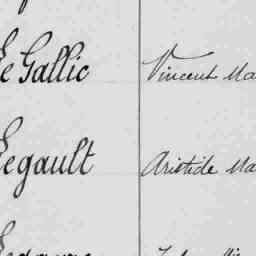 Le Gallic Vincent Ma
Legault Aristide Ma